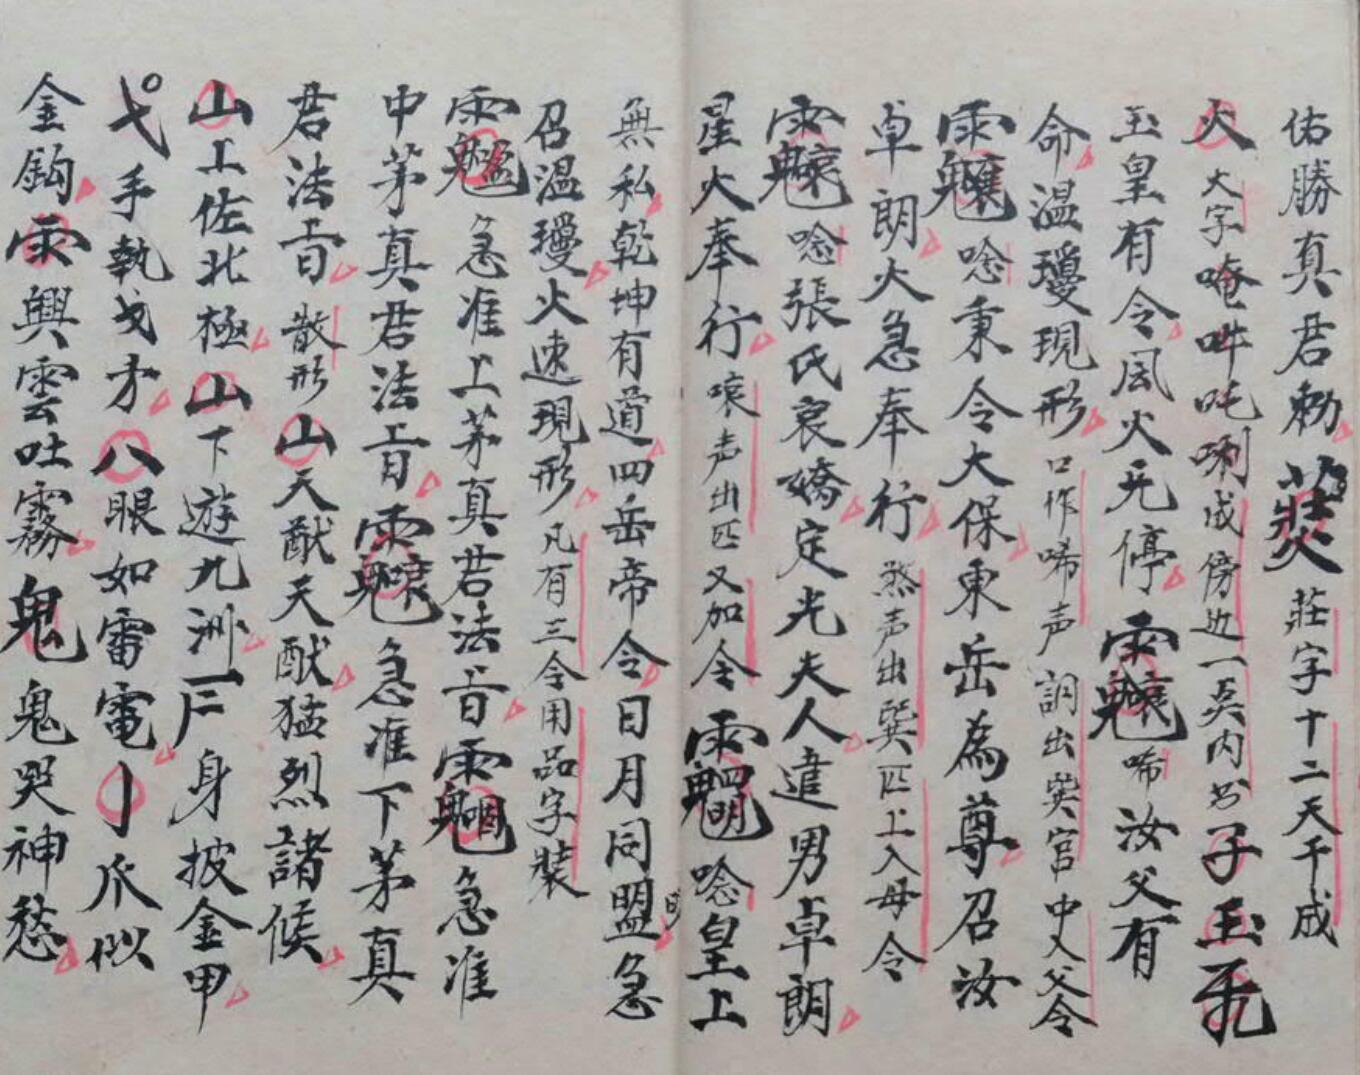 佑勝真君勅 莊字十二天千成
火 火字唵吽吒唎成傍近一炁内书子玉
玉皇有令風火无停 唏汝父有
命溫瓊現形 口作唏声調出巽宫中入父令
唸東令大保東岳為尊召汝
卓朗火急奉行 煞声出巽匹上入母令
唸張氏哀嬌定光夫人遣男卓朗
星火奉行 嚷声出匹又加令 唸皇上
無私乾坤有道四岳帝令日月同盟急
召溫瓊火速現形 凡有三令用品字裝
急准上茅真君法旨 急准
中茅真君法旨 急准下茅真
君法旨 散形 山天猷天猷猛烈諸候
山上佐北極山下遊九洲 身披金甲
弋手執戈矛八眼如雷電亅爪似
金鈎雨興雲吐霧鬼鬼哭神愁